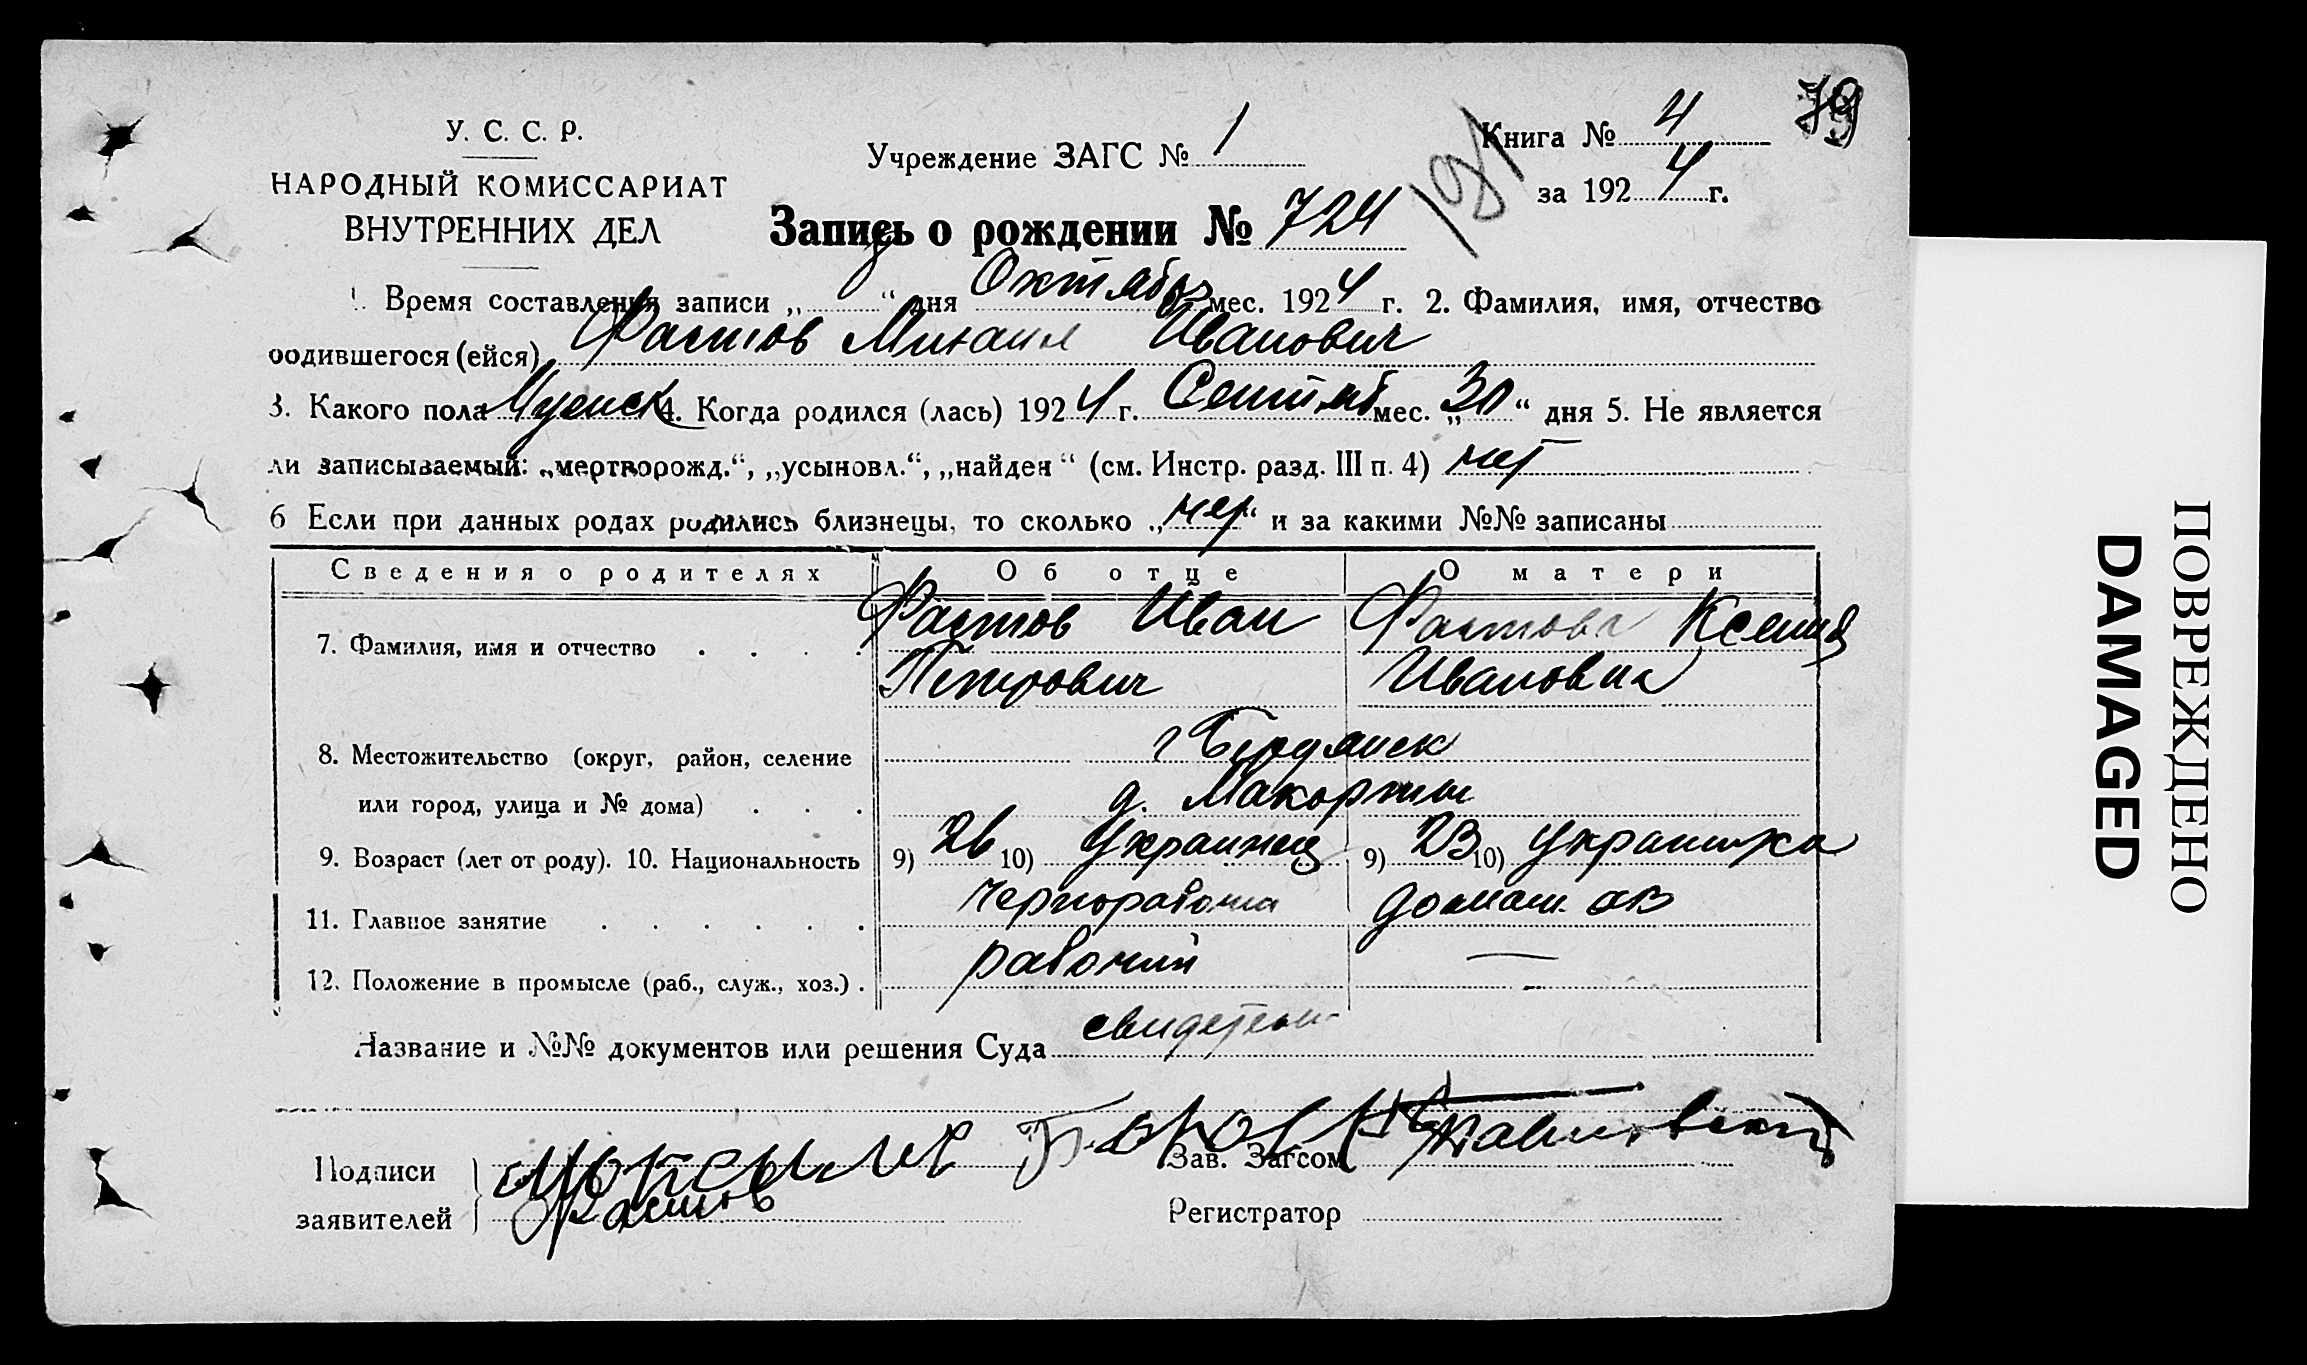 У. С. С. Р.
НАРОДНЫЙ КОМИССАРИАТ
ВНУТРЕННИХ ДЕЛ
Учреждение ЗАГС № 1
Книга № 4
за 1924 г.
Запись о рождении № 724
1. Время составления записи „ “ дня Октябр мес. 1924 г. 2. Фамилия, имя, отчество
родившегося (ейся) Фастов Михаил Иванович
3. Какого пола Мужск 4. Когда родился (лась) 1924 г. Сентяб мес. „30“ дня 5. Не является
ли записываемый: „мертворожд.“, „усыновл.“, „найден“ (см. Инстр. разд. III п. 4) нет
6 Если при данных родах родились близнецы, то сколько „нет“ и за какими №№ записаны
Сведения о родителях Об отце О матери
7. Фамилия, имя и отчество . . . . Фастов Иван Фастова Ксения
Петрович Ивановна
8. Местожительство (округ, район, селение г Бердянск
или город, улица и № дома) . . . д. Макорты
9. Возраст (лет от роду). 10. Национальность 9) 26 10) Украинец 9) 23 10) Украинка
11. Главное занятие . . . . . . чернорабочий домаш. хоз
12. Положение в промысле (раб., служ., хоз.) . рабочий —
Название и №№ документов или решения Суда свидетели
Подписи
заявителей Фастов
Зав. Загсом
Регистратор
ПОВРЕЖДЕНО
DAMAGED